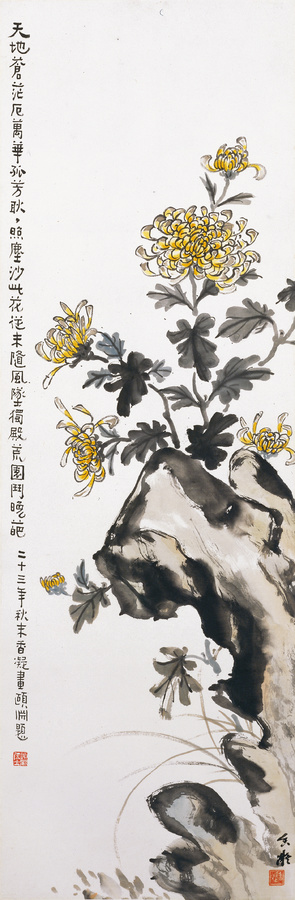 天地蒼茫厄萬華孤芳耿々照塵沙此花從未隨風墜獨殿荒園鬥晚葩 二十三年秋末香凝畫頤淵題
香凝